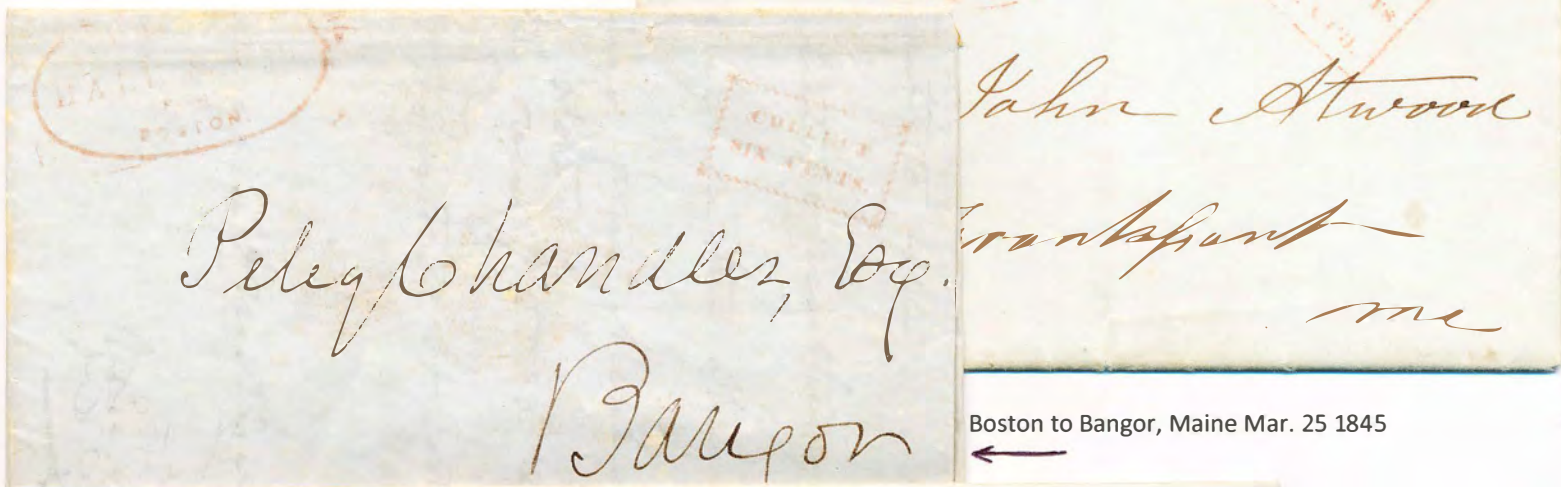 BOSTON.
COLLECT
SIX CENTS.
Peleg Chandler, Esq.
Bangor
John Atwood
Frankfort
me
Boston to Bangor, Maine Mar. 25 1845